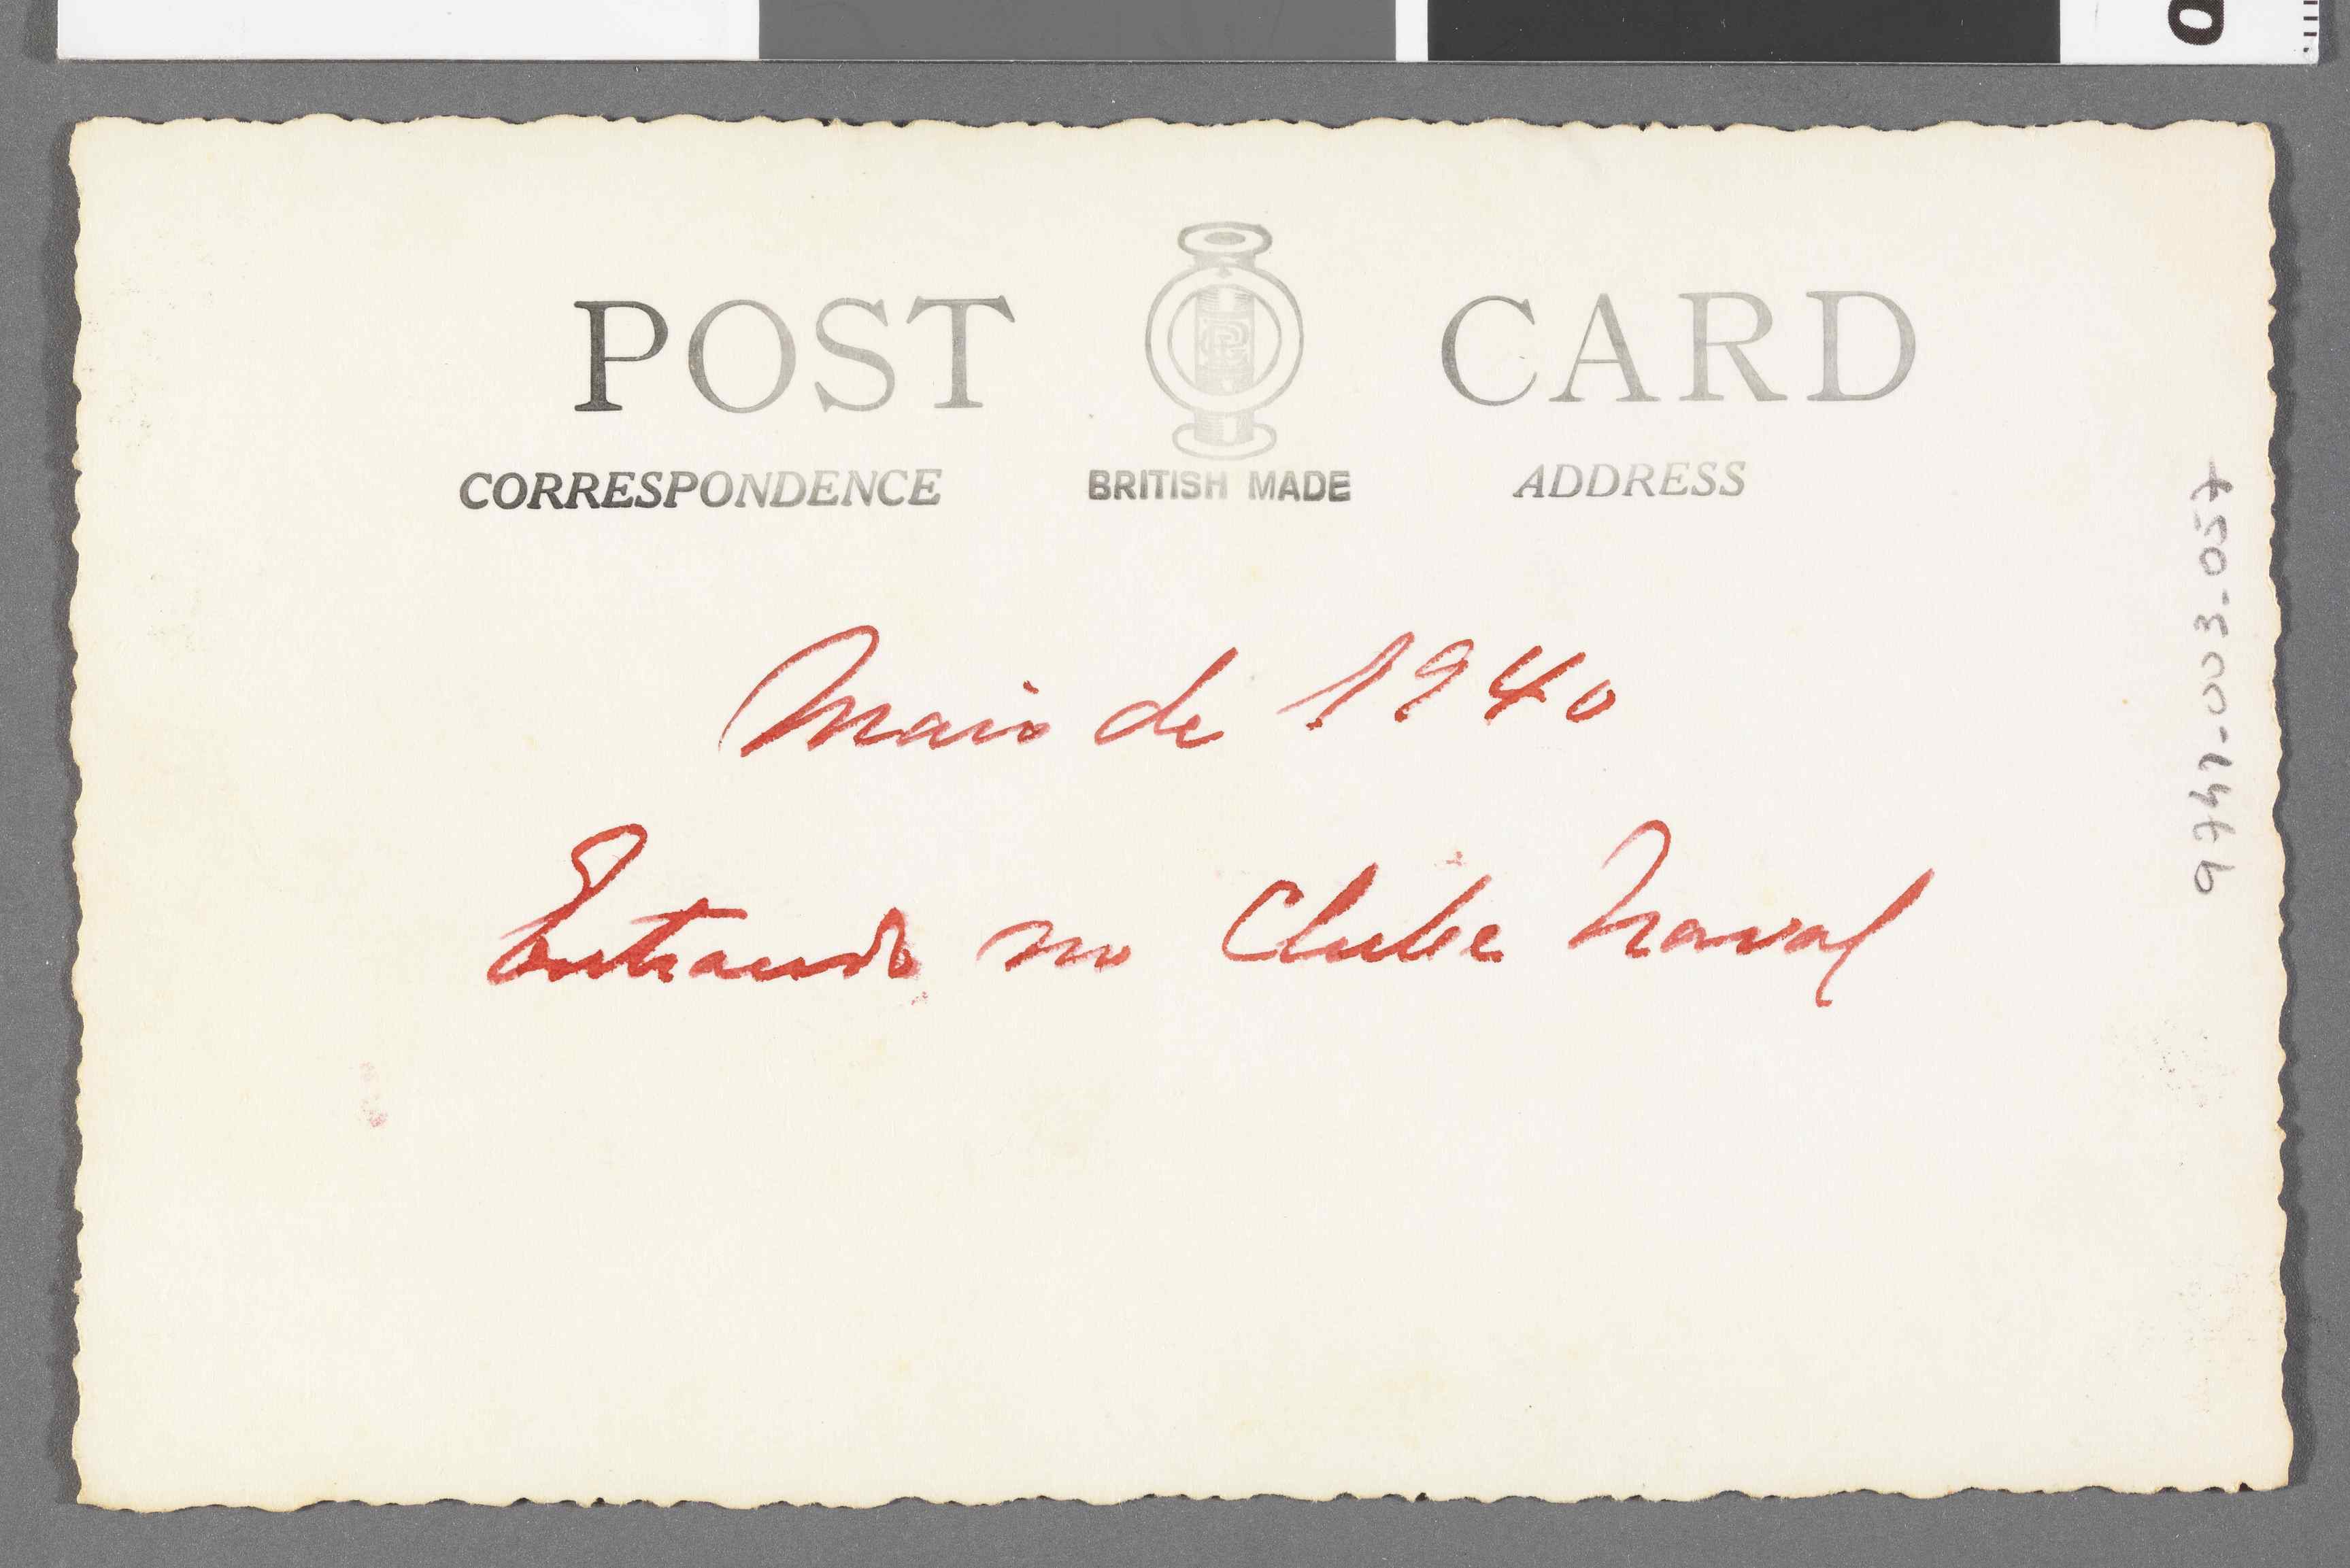 POST CARD
CORRESPONDENCE BRITISH MADE ADDRESS
Maio de 1940
Entrando no Clube Naval